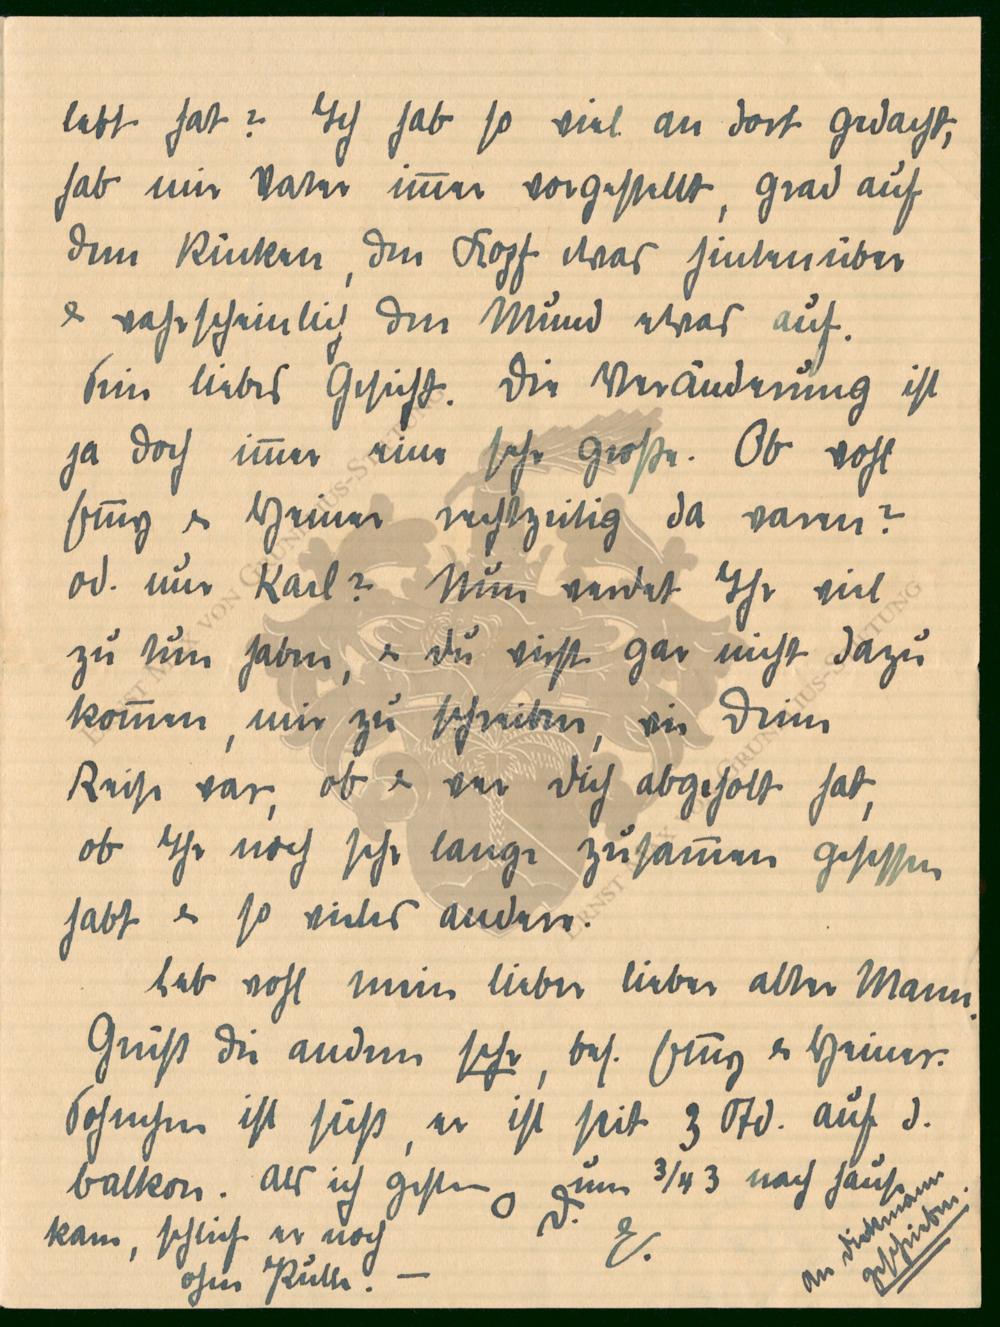 lebt hat? Ich hab so viel an dort gedacht,
hab mir Vater im̅er vorgestellt, grad auf
dem Rücken, den Kopf etwas hintenüber
& wahrscheinlich den Mund etwas auf.
Sein liebes Gesicht. Die Veränderung ist
ja doch im̅er eine sehr große. Ob wohl
Em̅y & Heiner rechtzeitig da waren?
od. nur Karl? Nun werdet Ihr viel
zu tun haben, & du wirst gar nicht dazu
kom̅en, mir zu schreiben, wie Deine
Reise war, ob & wer Dich abgeholt hat,
ob Ihr noch sehr lange zusam̅en gesessen
habt & so vieles andere.
Leb wohl mein lieber lieber alter Mann.
Grüß die andern sehr, bes. Em̅y & Heiner.
Söhnchen ist süß, er ist seit 3 Std. auf d.
balkon. Als ich gestern um 3/4 3 nach Hause
kam, schlief er noch
ohne Rulle. —
D.
E.
An Diekmann
geschrieben.
ERNST MAX VON GRUNELIUS-STIFTUNG
ERNST MAX VON GRUNELIUS-STIFTUNG